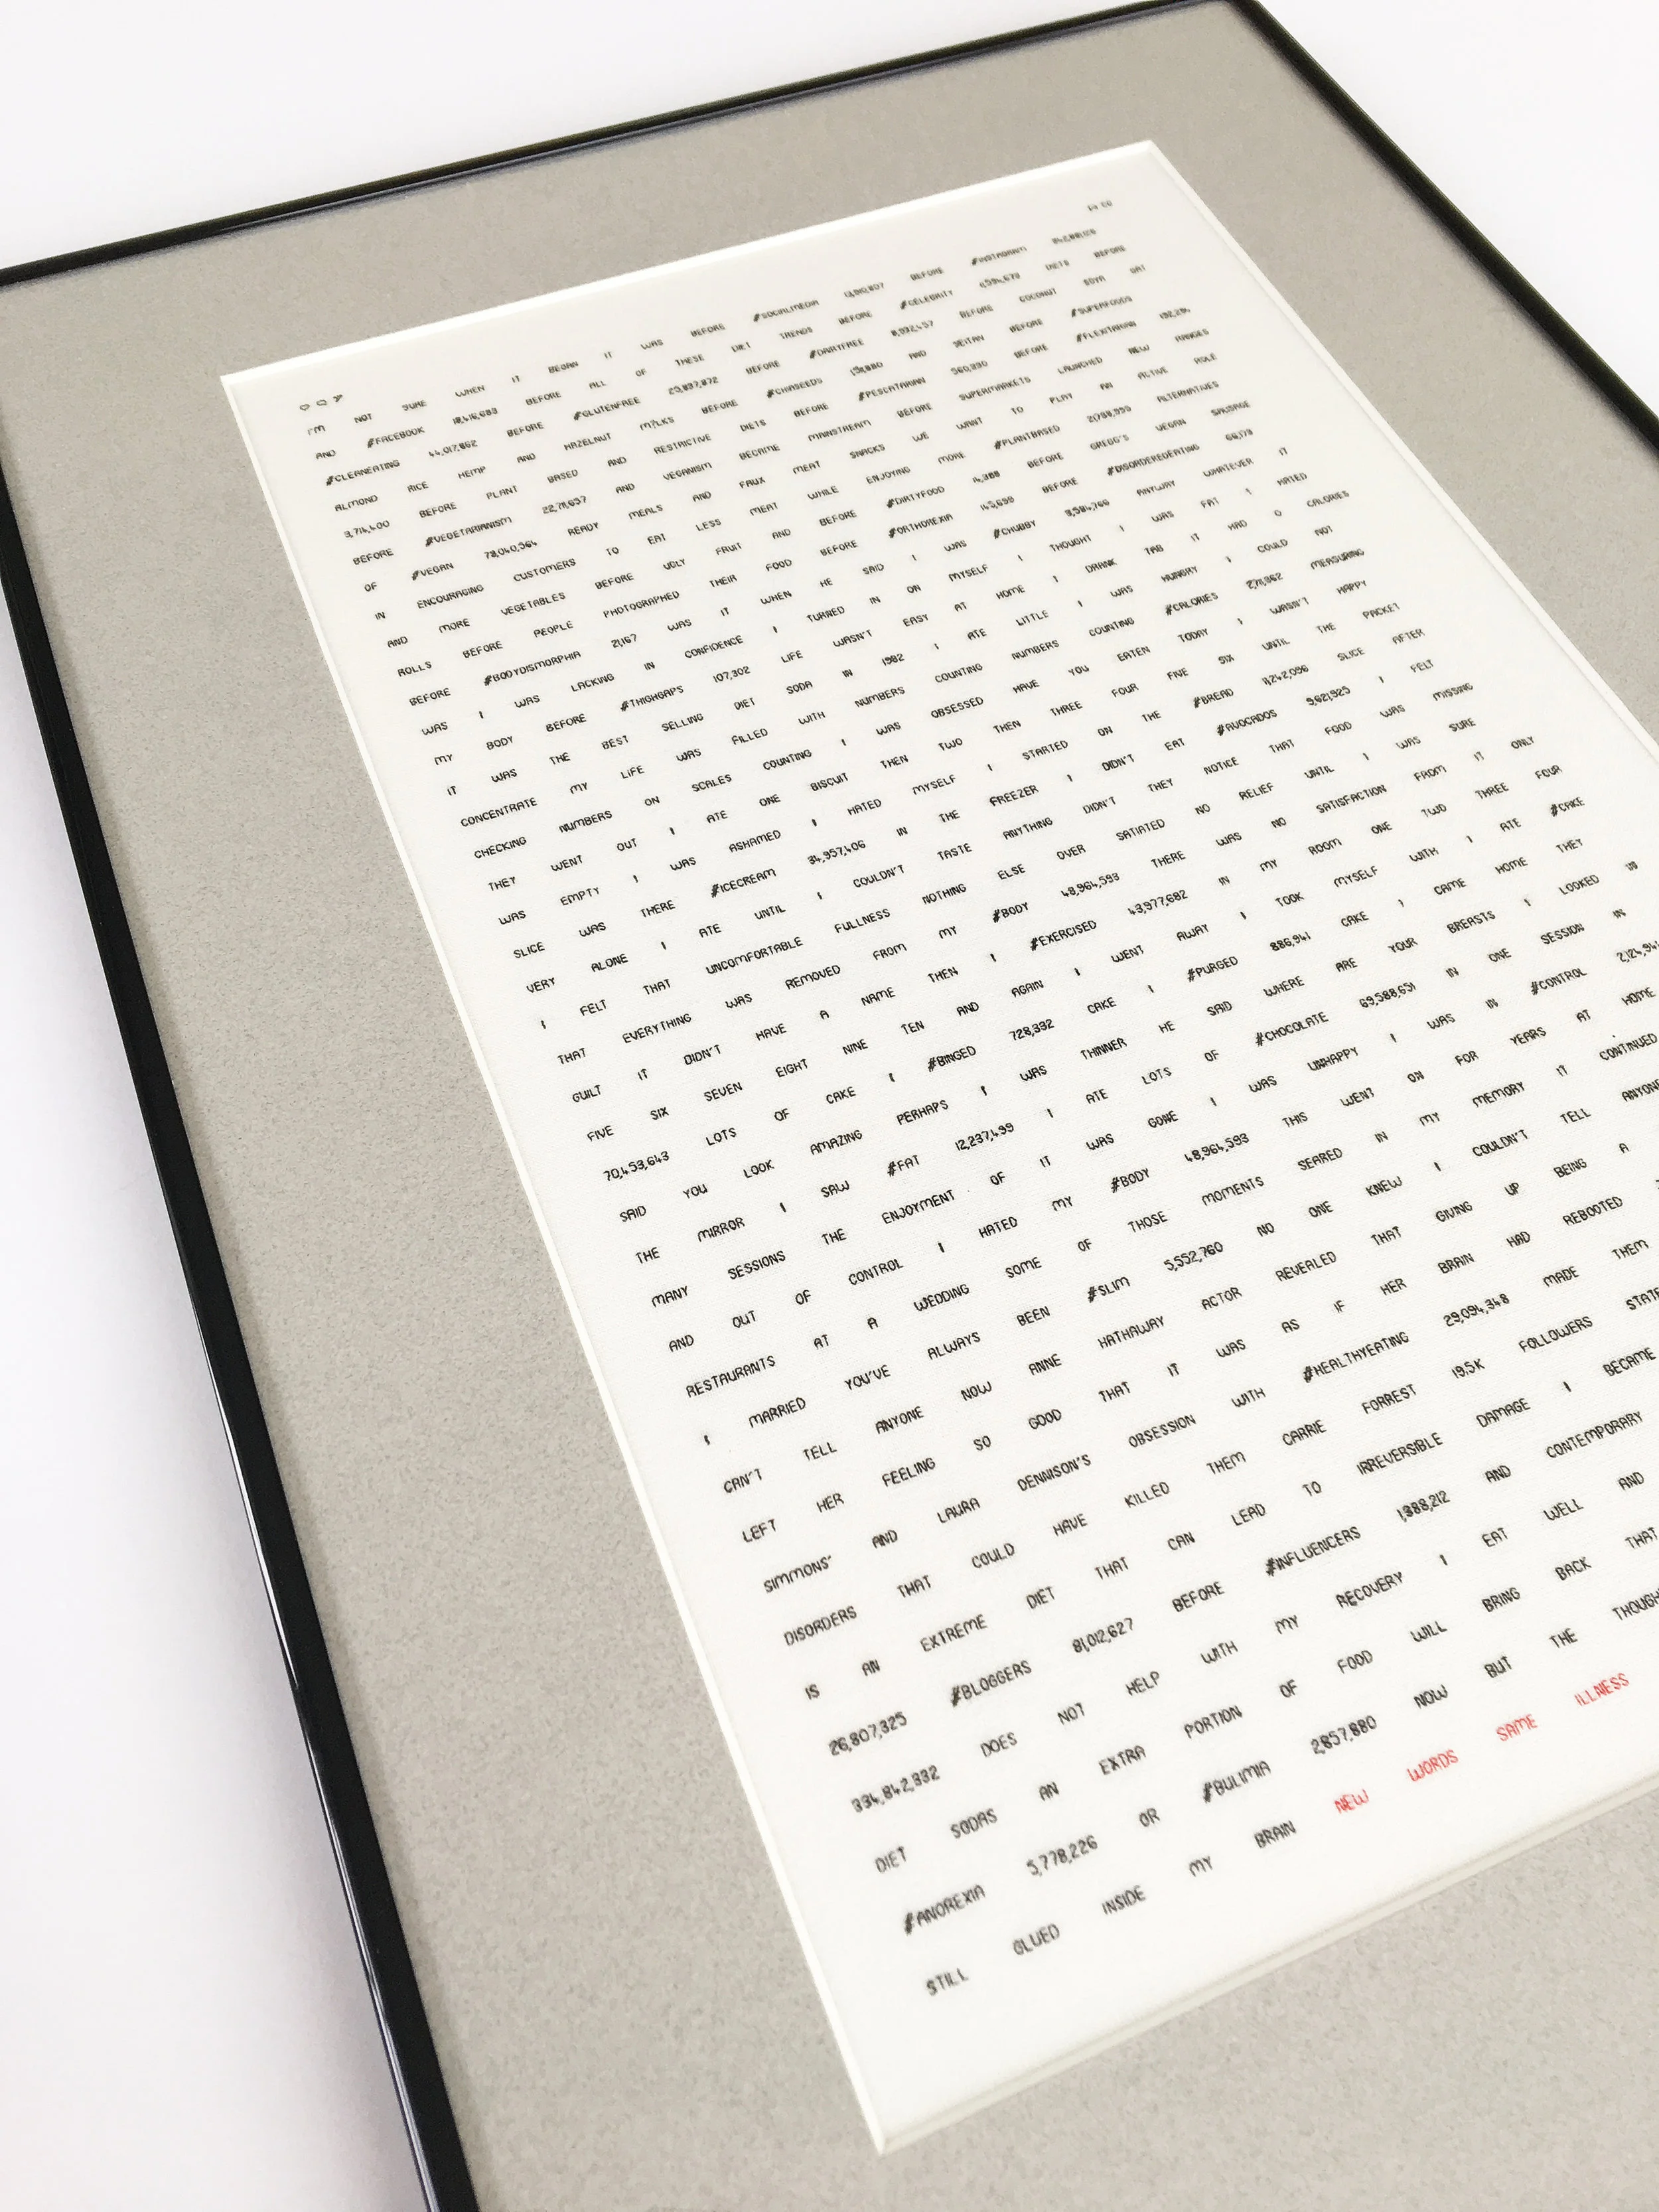 I'M NOT SURE WHEN IT BEGAN IT WAS BEFORE #SOCIALMEDIA BEFORE #INSTAGRAM
AND #FACEBOOK 18,416,683 BEFORE ALL OF THESE DIET TRENDS BEFORE #CELEBRITY 6,594,673 DIETS BEFORE
#CLEANEATING 44,017,862 BEFORE #GLUTENFREE 25,897,872 BEFORE #DAIRYFREE 8,992,457 BEFORE COCONUT SOYA OAT
ALMOND RICE HEMP AND HAZELNUT M?LKS BEFORE #CHIASEEDS AND SEITAN BEFORE #SUPERFOODS
3,714,400 BEFORE PLANT BASED AND RESTRICTIVE DIETS BEFORE #PESCATARIAN 560,930 BEFORE #FLEXITARIAN
BEFORE #VEGETARIANISM 22,711,697 AND VEGANISM BECAME MAINSTREAM BEFORE SUPERMARKETS LAUNCHED NEW RANGES
OF #VEGAN 78,040,564 READY MEALS AND FAUX MEAT SNACKS WE WANT TO PLAY AN ACTIVE ROLE
IN ENCOURAGING CUSTOMERS TO EAT LESS MEAT WHILE ENJOYING MORE #PLANTBASED ALTERNATIVES
AND MORE VEGETABLES BEFORE UGLY FRUIT AND BEFORE #DIRTYFOOD 14,388 BEFORE GREGG'S VEGAN SAUSAGE
ROLLS BEFORE PEOPLE PHOTOGRAPHED THEIR FOOD BEFORE #ORTHOREXIA 145,699 BEFORE #DISORDEREDEATING 66,173
BEFORE #BODYDISMORPHIA 21,167 WAS IT WHEN HE SAID I WAS #CHUBBY 3,584,766 ANYWAY WHATEVER IT
WAS I WAS LACKING IN CONFIDENCE I TURNED IN ON MYSELF I THOUGHT I WAS FAT I HATED
MY BODY BEFORE #THIGHGAPS 107,302 LIFE WASN'T EASY AT HOME I DRANK TAB IT HAD 0 CALORIES
IT WAS THE BEST SELLING DIET SODA IN 1982 I ATE LITTLE I WAS HUNGRY I COULD NOT
CONCENTRATE MY LIFE WAS FILLED WITH NUMBERS COUNTING NUMBERS COUNTING #CALORIES 2,711,362 MEASURING
CHECKING NUMBERS ON SCALES COUNTING I WAS OBSESSED HAVE YOU EATEN TODAY I WASN'T HAPPY
THEY WENT OUT I ATE ONE BISCUIT THEN TWO THEN THREE FOUR FIVE SIX UNTIL THE PACKET
WAS EMPTY I WAS ASHAMED I HATED MYSELF I STARTED ON THE #BREAD 11,242,096 SLICE AFTER
SLICE WAS THERE #ICECREAM 34,957,406 IN THE FREEZER I DIDN'T EAT #AVOCADOS 9,621,925 I FELT
VERY ALONE I ATE UNTIL I COULDN'T TASTE ANYTHING DIDN'T THEY NOTICE THAT FOOD WAS MISSING
I FELT THAT UNCOMFORTABLE FULLNESS NOTHING ELSE OVER SATIATED NO RELIEF UNTIL I WAS SURE
THAT EVERYTHING WAS REMOVED FROM MY #BODY 48,964,593 THERE WAS NO SATISFACTION FROM IT ONLY
GUILT IT DIDN'T HAVE A NAME THEN I #EXERCISED 43,977,682 IN MY ROOM ONE TWO THREE FOUR
FIVE SIX SEVEN EIGHT NINE TEN AND AGAIN I WENT AWAY I TOOK MYSELF WITH I ATE #CAKE
70,453,643 LOTS OF CAKE I #BINGED 728,332 CAKE I #PURGED 886,941 CAKE I CAME HOME THEY
SAID YOU LOOK AMAZING PERHAPS I WAS THINNER HE SAID WHERE ARE YOUR BREASTS I LOOKED IN
THE MIRROR I SAW #FAT 12,237,499 I ATE LOTS OF #CHOCOLATE 69,588,651 IN ONE SESSION IN
MANY SESSIONS THE ENJOYMENT OF IT WAS GONE I WAS UNHAPPY I WAS IN #CONTROL 2,124,94
AND OUT OF CONTROL I HATED MY #BODY 48,964,593 THIS WENT ON FOR YEARS AT HOME
RESTAURANTS AT A WEDDING SOME OF THOSE MOMENTS SEARED IN MY MEMORY IT CONTINUED
I MARRIED YOU'VE ALWAYS BEEN #SLIM 5,552,760 NO ONE KNEW I COULDN'T TELL ANYONE
CAN'T TELL ANYONE NOW ANNE HATHAWAY ACTOR REVEALED THAT GIVING UP BEING A
LEFT HER FEELING SO GOOD THAT IT WAS AS IF HER BRAIN HAD REBOOTED
SIMMONS' AND LAURA DENNISON'S OBSESSION WITH #HEALTHYEATING 29,094,348 MADE THEM
DISORDERS THAT COULD HAVE KILLED THEM CARRIE FORREST 19.5K FOLLOWERS STATE
IS AN EXTREME DIET THAT CAN LEAD TO IRREVERSIBLE DAMAGE I BECAME
26,807,325 #BLOGGERS 81,012,627 BEFORE #INFLUENCERS 1,388,212 AND CONTEMPORARY
334,842,332 DOES NOT HELP WITH MY RECOVERY I EAT WELL AND
DIET SODAS AN EXTRA PORTION OF FOOD WILL BRING BACK THAT
#ANOREXIA 5,778,226 OR #BULIMIA 2,857,880 NOW BUT THE THOUGH
STILL GLUED INSIDE MY BRAIN NEW WORDS SAME ILLNESS